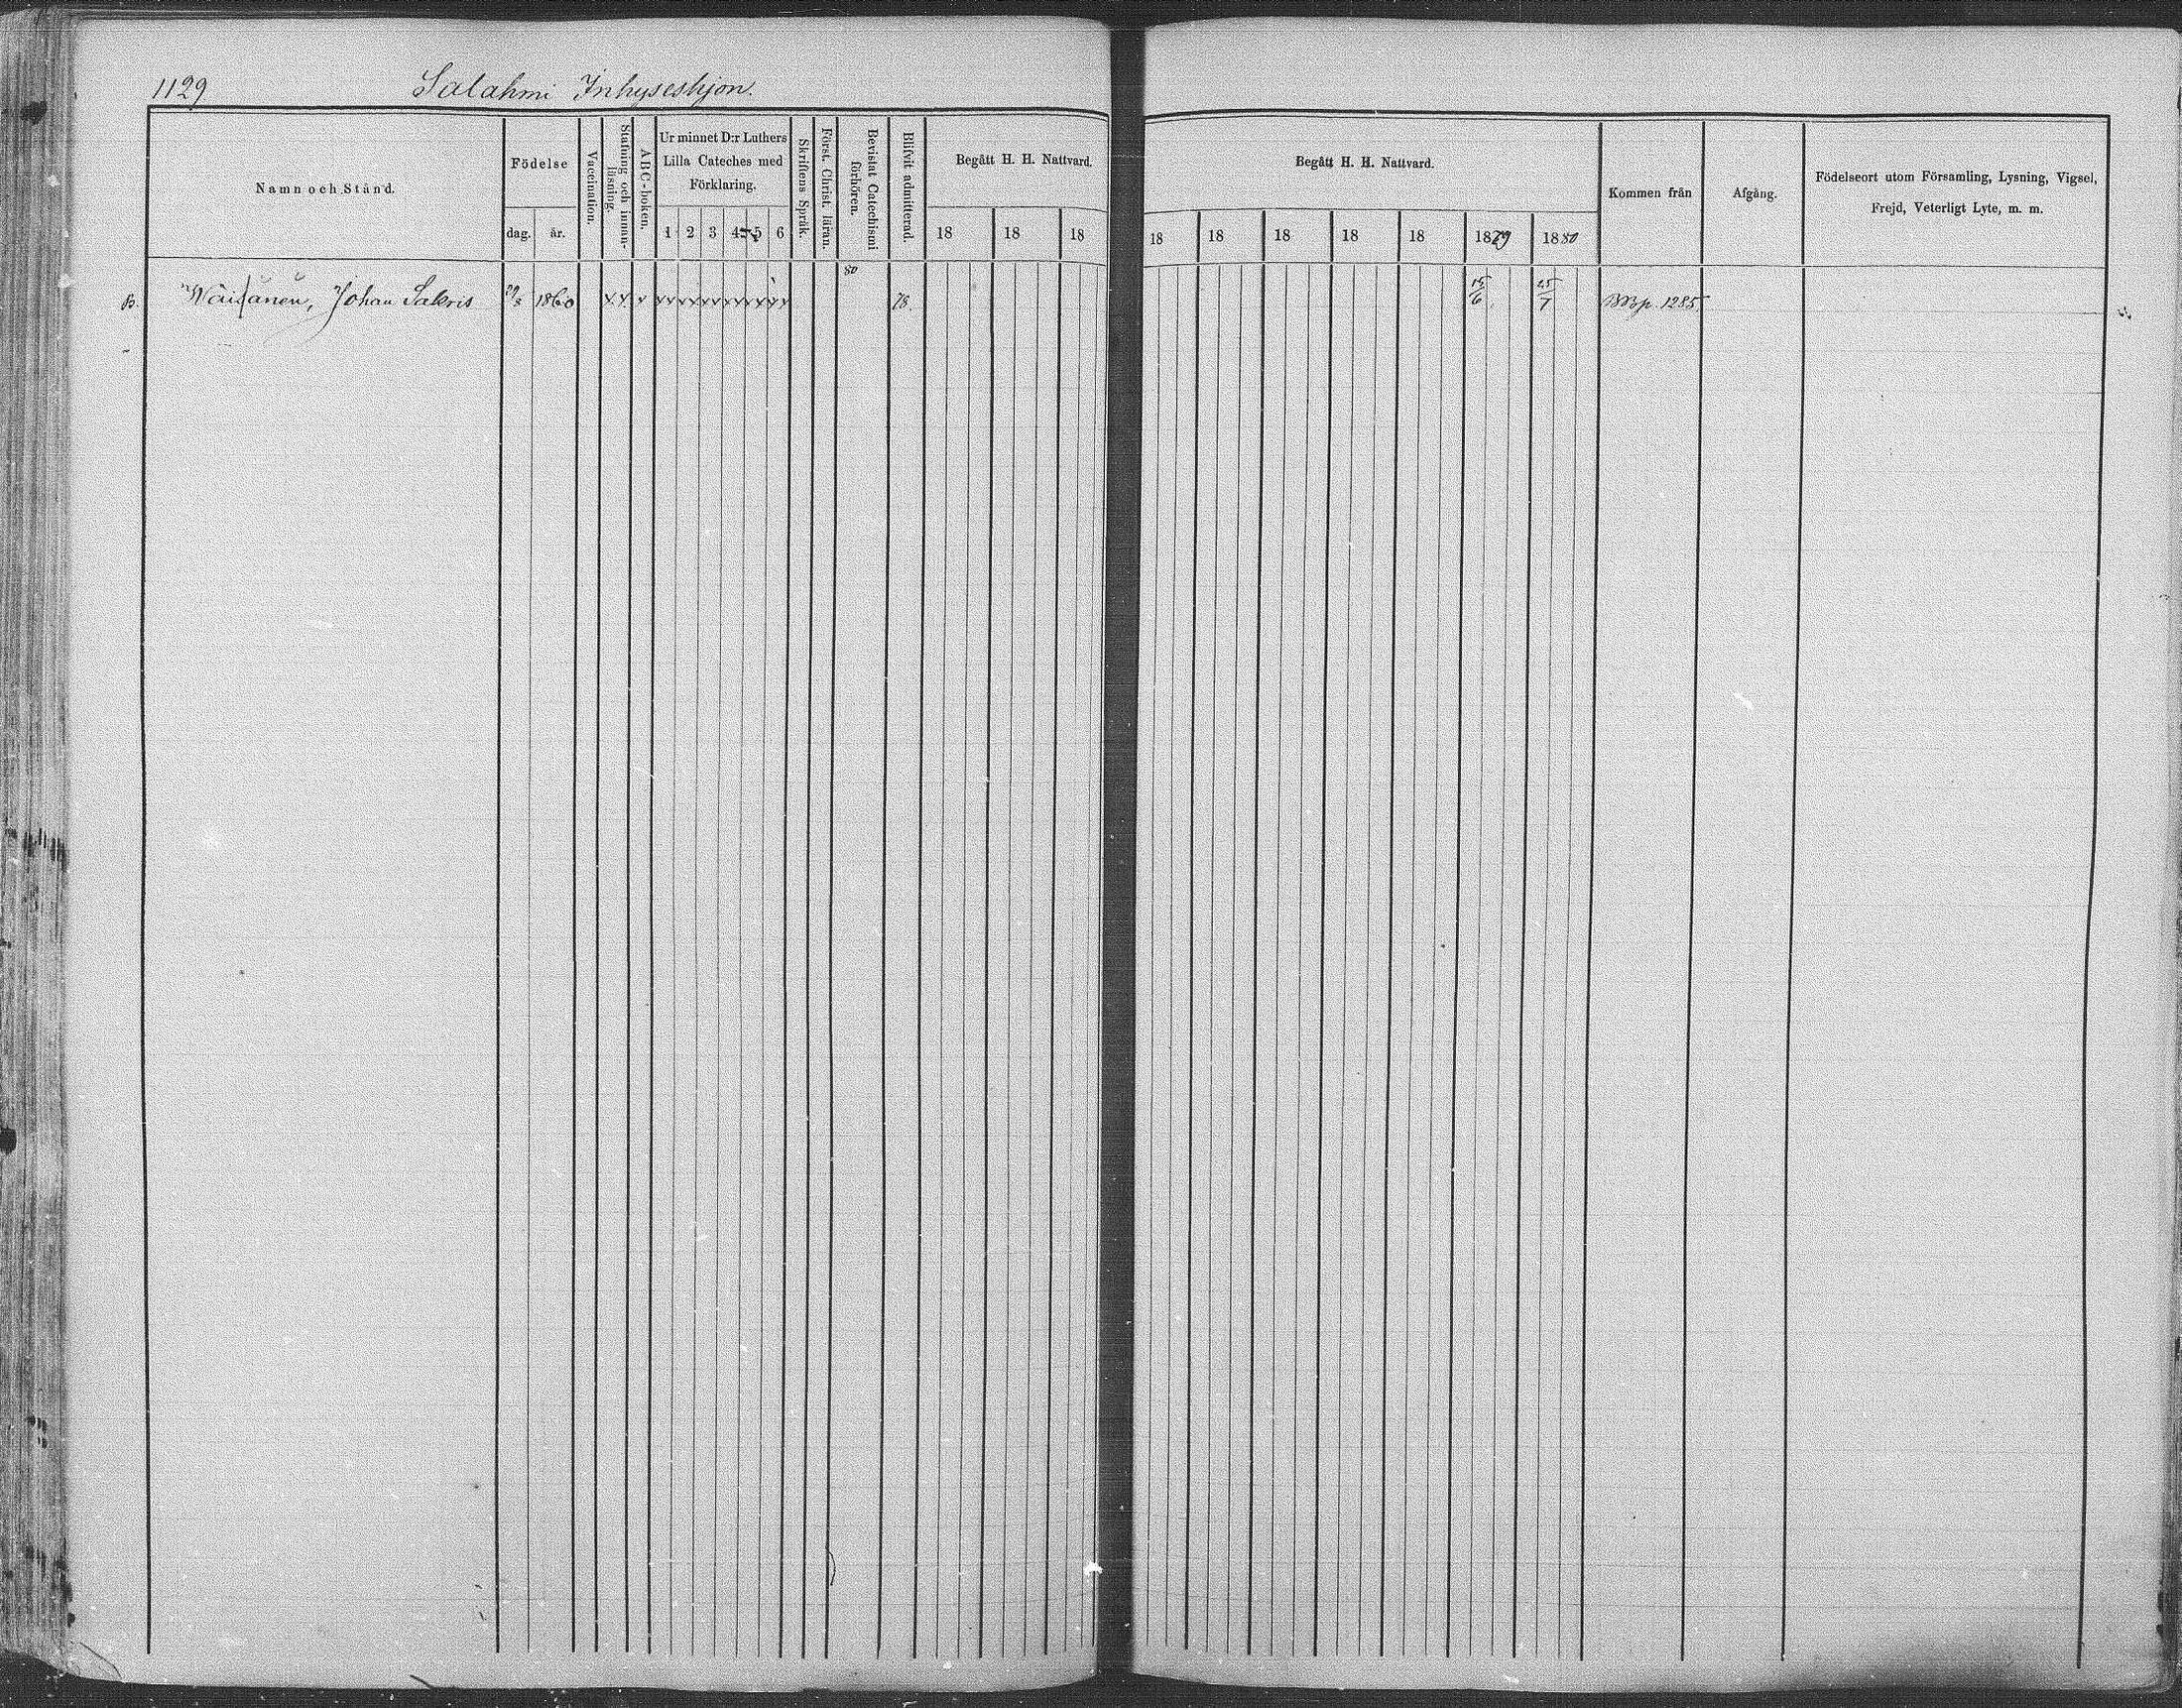 1129 Salahmi Inhyseshjon.
Namn och Stånd.
Födelse
dag. år.
Vaccination.
Stafning och innan-
läsning.
ABC-boken.
Ur minnet D:r Luthers
Lilla Cateches med
Förklaring.
1 2 3 4 5 6
Skriftens Språk.
Först. Christ. läran.
Bevistat Catechismi
förhören.
Blifvit admitterad.
Begått H. H. Nattvard.
18 18 18
Begått H. H. Nattvard.
18 18 18 18 18 1879 1880
Kommen från
Afgång.
Födelseort utom Församling, Lysning, Vigsel,
Frejd, Veterligt Lyte, m. m.
80
B. Wäisänen, Johan Sakris 29/8 1860 x x x x x x x x x x x x x x x 78. 15/6 25/7 p. 1285.